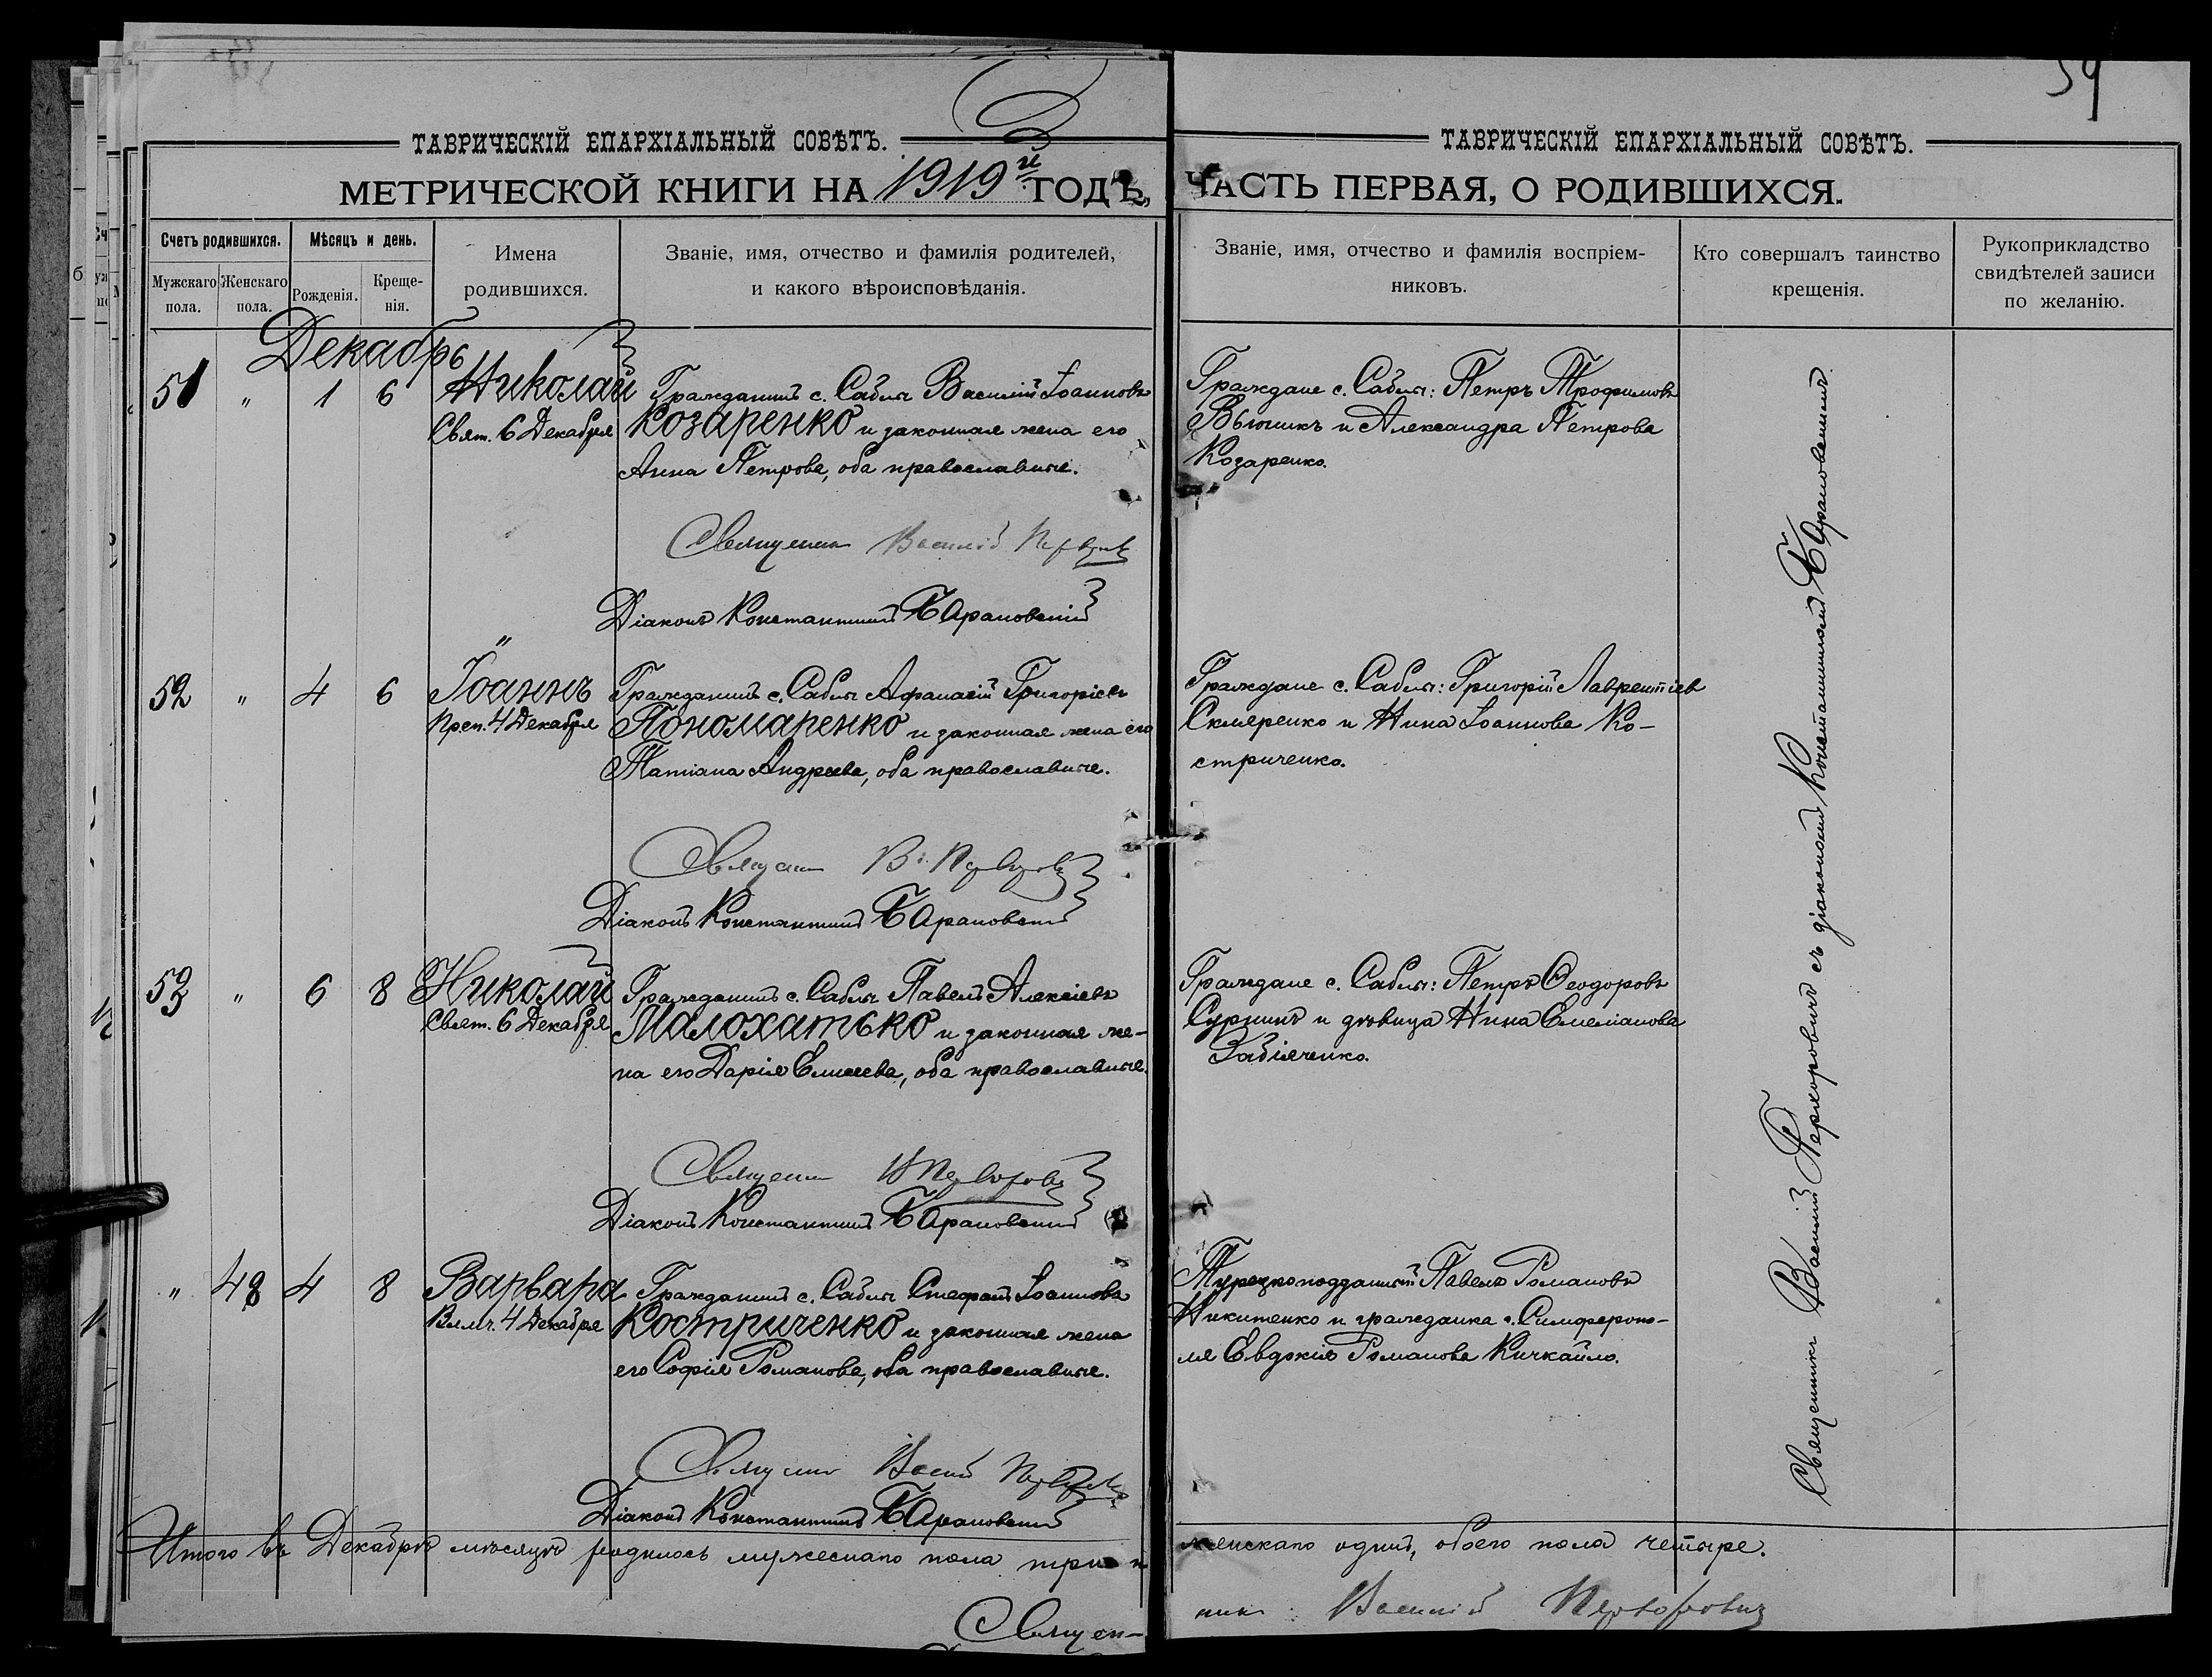 59
ТАВРИЧЕСКІЙ ЕПАРХІАЛЬНЫЙ СОВѢТЪ.
МЕТРИЧЕСКОЙ КНИГИ НА 1919й ГОДЪ,
Счетъ родившихся.
Мужскаго пола.
Женскаго пола.
Мѣсяцъ и день.
Рожденія.
Креще-
нія.
Имена
родившихся.
Званіе, имя, отчество и фамилія родителей,
и какого вѣроисповѣданія.
ТАВРИЧЕСКІЙ ЕПАРХІАЛЬНЫЙ СОВѢТЪ.
ЧАСТЬ ПЕРВАЯ, О РОДИВШИХСЯ.
Званіе, имя, отчество и фамилія воспріем-
никовъ.
Кто совершалъ таинство
крещенія.
Рукоприкладство
свидѣтелей записи
по желанію.
Декабрь
51 " 1 6 Николай
Свят. 6 Декабря
Гражданинъ с. Саблы Василій Іоанновъ
Козаренко и законная жена его
Анна Петрова, оба православные.
Граждане с. Саблы: Петръ Трофимовъ
Вьюникъ и Александра Петрова
Козаренко.
Священникъ Василій
Діаконъ Константинъ Барановскій
52 " 4 6 Іоаннъ
Преп. 4 Декабря
Гражданинъ с. Саблы Афанасій Григоріевъ
Пономаренко и законная жена его
Татіана Андреева, оба православные.
Граждане с. Саблы: Григорій Лаврентіевъ
Скляренко и Нина Іоаннова Ко-
стриченко.
Священникъ В.
Діаконъ Константинъ Барановскій
53 " 6 8 Николай
Свят. 6 Декабря
Гражданинъ с. Саблы Павелъ Алексіевъ
Малохатько и законная же-
на его Дарія Елисеева, оба православные.
Граждане с. Саблы: Петръ Ѳеодоровъ
Сурнинъ и дѣвица Нина Емеліанова
Забіяченко.
Священникъ
Діаконъ Константинъ Барановскій
" 48 4 8 Варвара
Влмч. 4 Декабря
Гражданинъ с. Саблы Стефанъ Іоанновъ
Костриченко и законная жена
его Софія Романова, оба православные.
Турецкоподданный Павелъ Романовъ
Никитенко и гражданка г. Симферопо-
ля Евдокія Романова Кичкайло.
Священникъ Василій
Діаконъ Константинъ Барановскій
Священникъ Василій Перхоровичъ съ діакономъ Константиномъ Барановскимъ
Итого въ Декабрѣ мѣсяцѣ родилось мужескаго пола три и
женскаго одинъ, обоего пола четыре.
Священ-
никъ Василій Перхоровичъ